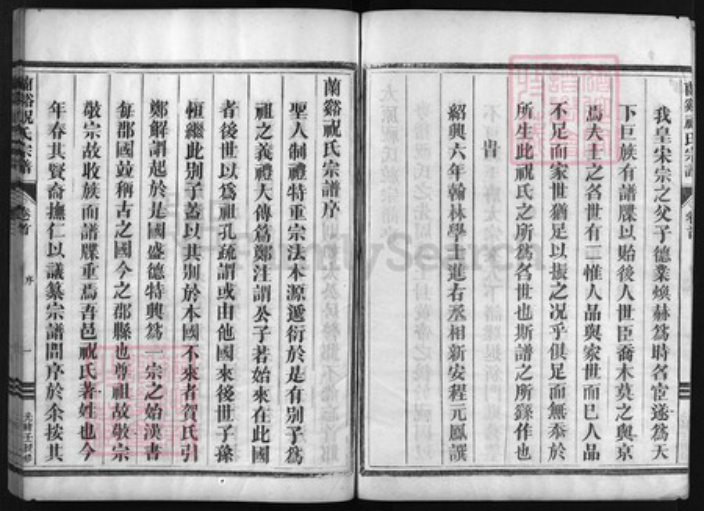 蘭谿祝氏宗譜
卷首
我皇宋宗之父子德業煥赫為時名宦遂為天
下巨族有譜牒以貽後人世臣喬木莫之與京
焉夫士之名世有二惟人品與家世而已人品
不足而家世猶足以振之況乎俱足而無忝於
所生此祝氏之所為名世也斯譜之所繇作也
旹
紹興六年翰林學士進右丞相新安程元鳳譔
蘭谿祝氏宗譜序
聖人制禮特重宗法本源遞衍於是有別子為
祖之義禮大傳篇鄭注謂公子若始來在此國
者後世以為祖孔疏謂或由他國來後世子孫
恒繼此別子蓋以其別於本國不來者賀氏引
鄭解謂起於是國盛德特興為一宗之始漢書
每郡國竝稱古之國今之郡縣也尊祖故敬宗
敬宗故收族而譜牒重焉吾邑祝氏著姓也今
年春其賢裔撫仁以議纂宗譜問序於余按其
蘭谿祝氏宗譜
卷首
序
一
FamilySearch